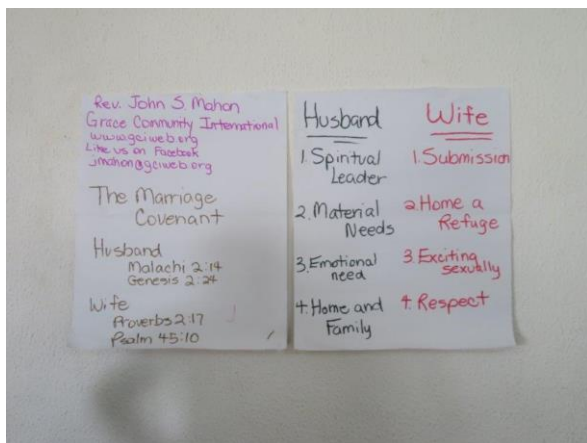 Rev. John S. Mahon
Grace Community International
www.gciweb.org
Like us on Facebook
jmahon@gciweb.org
The Marriage
Covenant
Husband
Malachi 2:14
Genesis 2:24
Wife
Proverbs 2:17
Psalm 45:10
Husband
1. Spiritual
Leader
2. Material
Needs
3. Emotional
need
4. Home and
Family
Wife
1. Submission
2. Home a
Refuge
3. Exciting
sexually
4. Respect